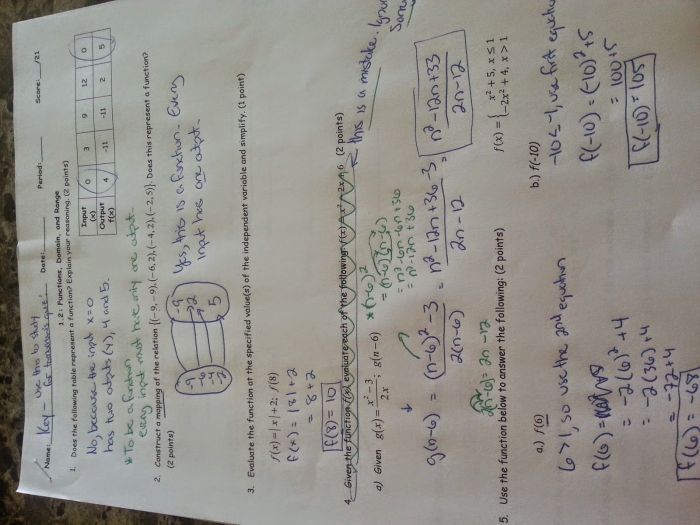 Name: Key Date: Period: Score: /21
use this to study
for tomorrow's quiz!
1.2: Functions, Domain, and Range
1. Does the following table represent a function? Explain your reasoning. (2 points)
Input (x) 0 3 9 12 0
Output f(x) 4 -11 -11 2 5
No, because the input x=0
has two outputs (y), 4 and 5.
* To be a function
every input must have only one output.
2. Construct a mapping of the relation {(-9, -9),(-6, 2),(-4, 2),(-2, 5)}. Does this represent a function?
(2 points)
-9 -6 -4 -2
-9 2 5
Yes, this is a function. Every
input has one output.
3. Evaluate the function at the specified value(s) of the independent variable and simplify. (1 point)
f(x)=|x|+2; f(8)
f(x) = |8|+2
= 8+2
f(8) = 10
4. Given the function f(x), evaluate each of the following: f(x) = x² - 2x + 6 (2 points)
this is a mistake.
a) Given g(x) = x² - 3 / 2x ; g(n-6)
* (n-6)²
= (n-6)(n-6)
= n²-6n-6n+36
= n²-12n+36
g(n-6) = (n-6)² - 3 / 2(n-6) = n²-12n+36-3 / 2n-12 = n²-12n+33 / 2n-12
2(n-6) = 2n-12
5. Use the function below to answer the following: (2 points)
f(x) = { x² + 5, x ≤ 1
-2x² + 4, x > 1
a.) f(6)
6>1, so use the 2nd equation
f(6) =
= -2(6)²+4
= -2(36)+4
= -72+4
f(6) = -68
b.) f(-10)
-10 ≤ -1, use first equation
f(-10) = (-10)²+5
= 100+5
f(-10) = 105